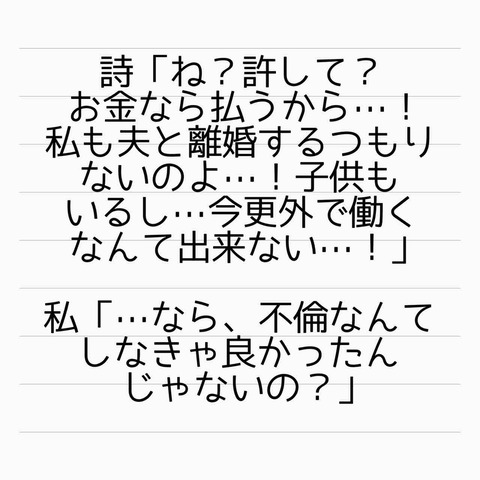 詩「ね？許して？
お金なら払うから…！
私も夫と離婚するつもり
ないのよ…！子供も
いるし…今更外で働く
なんて出来ない…！」
私「…なら、不倫なんて
しなきゃ良かったん
じゃないの？」